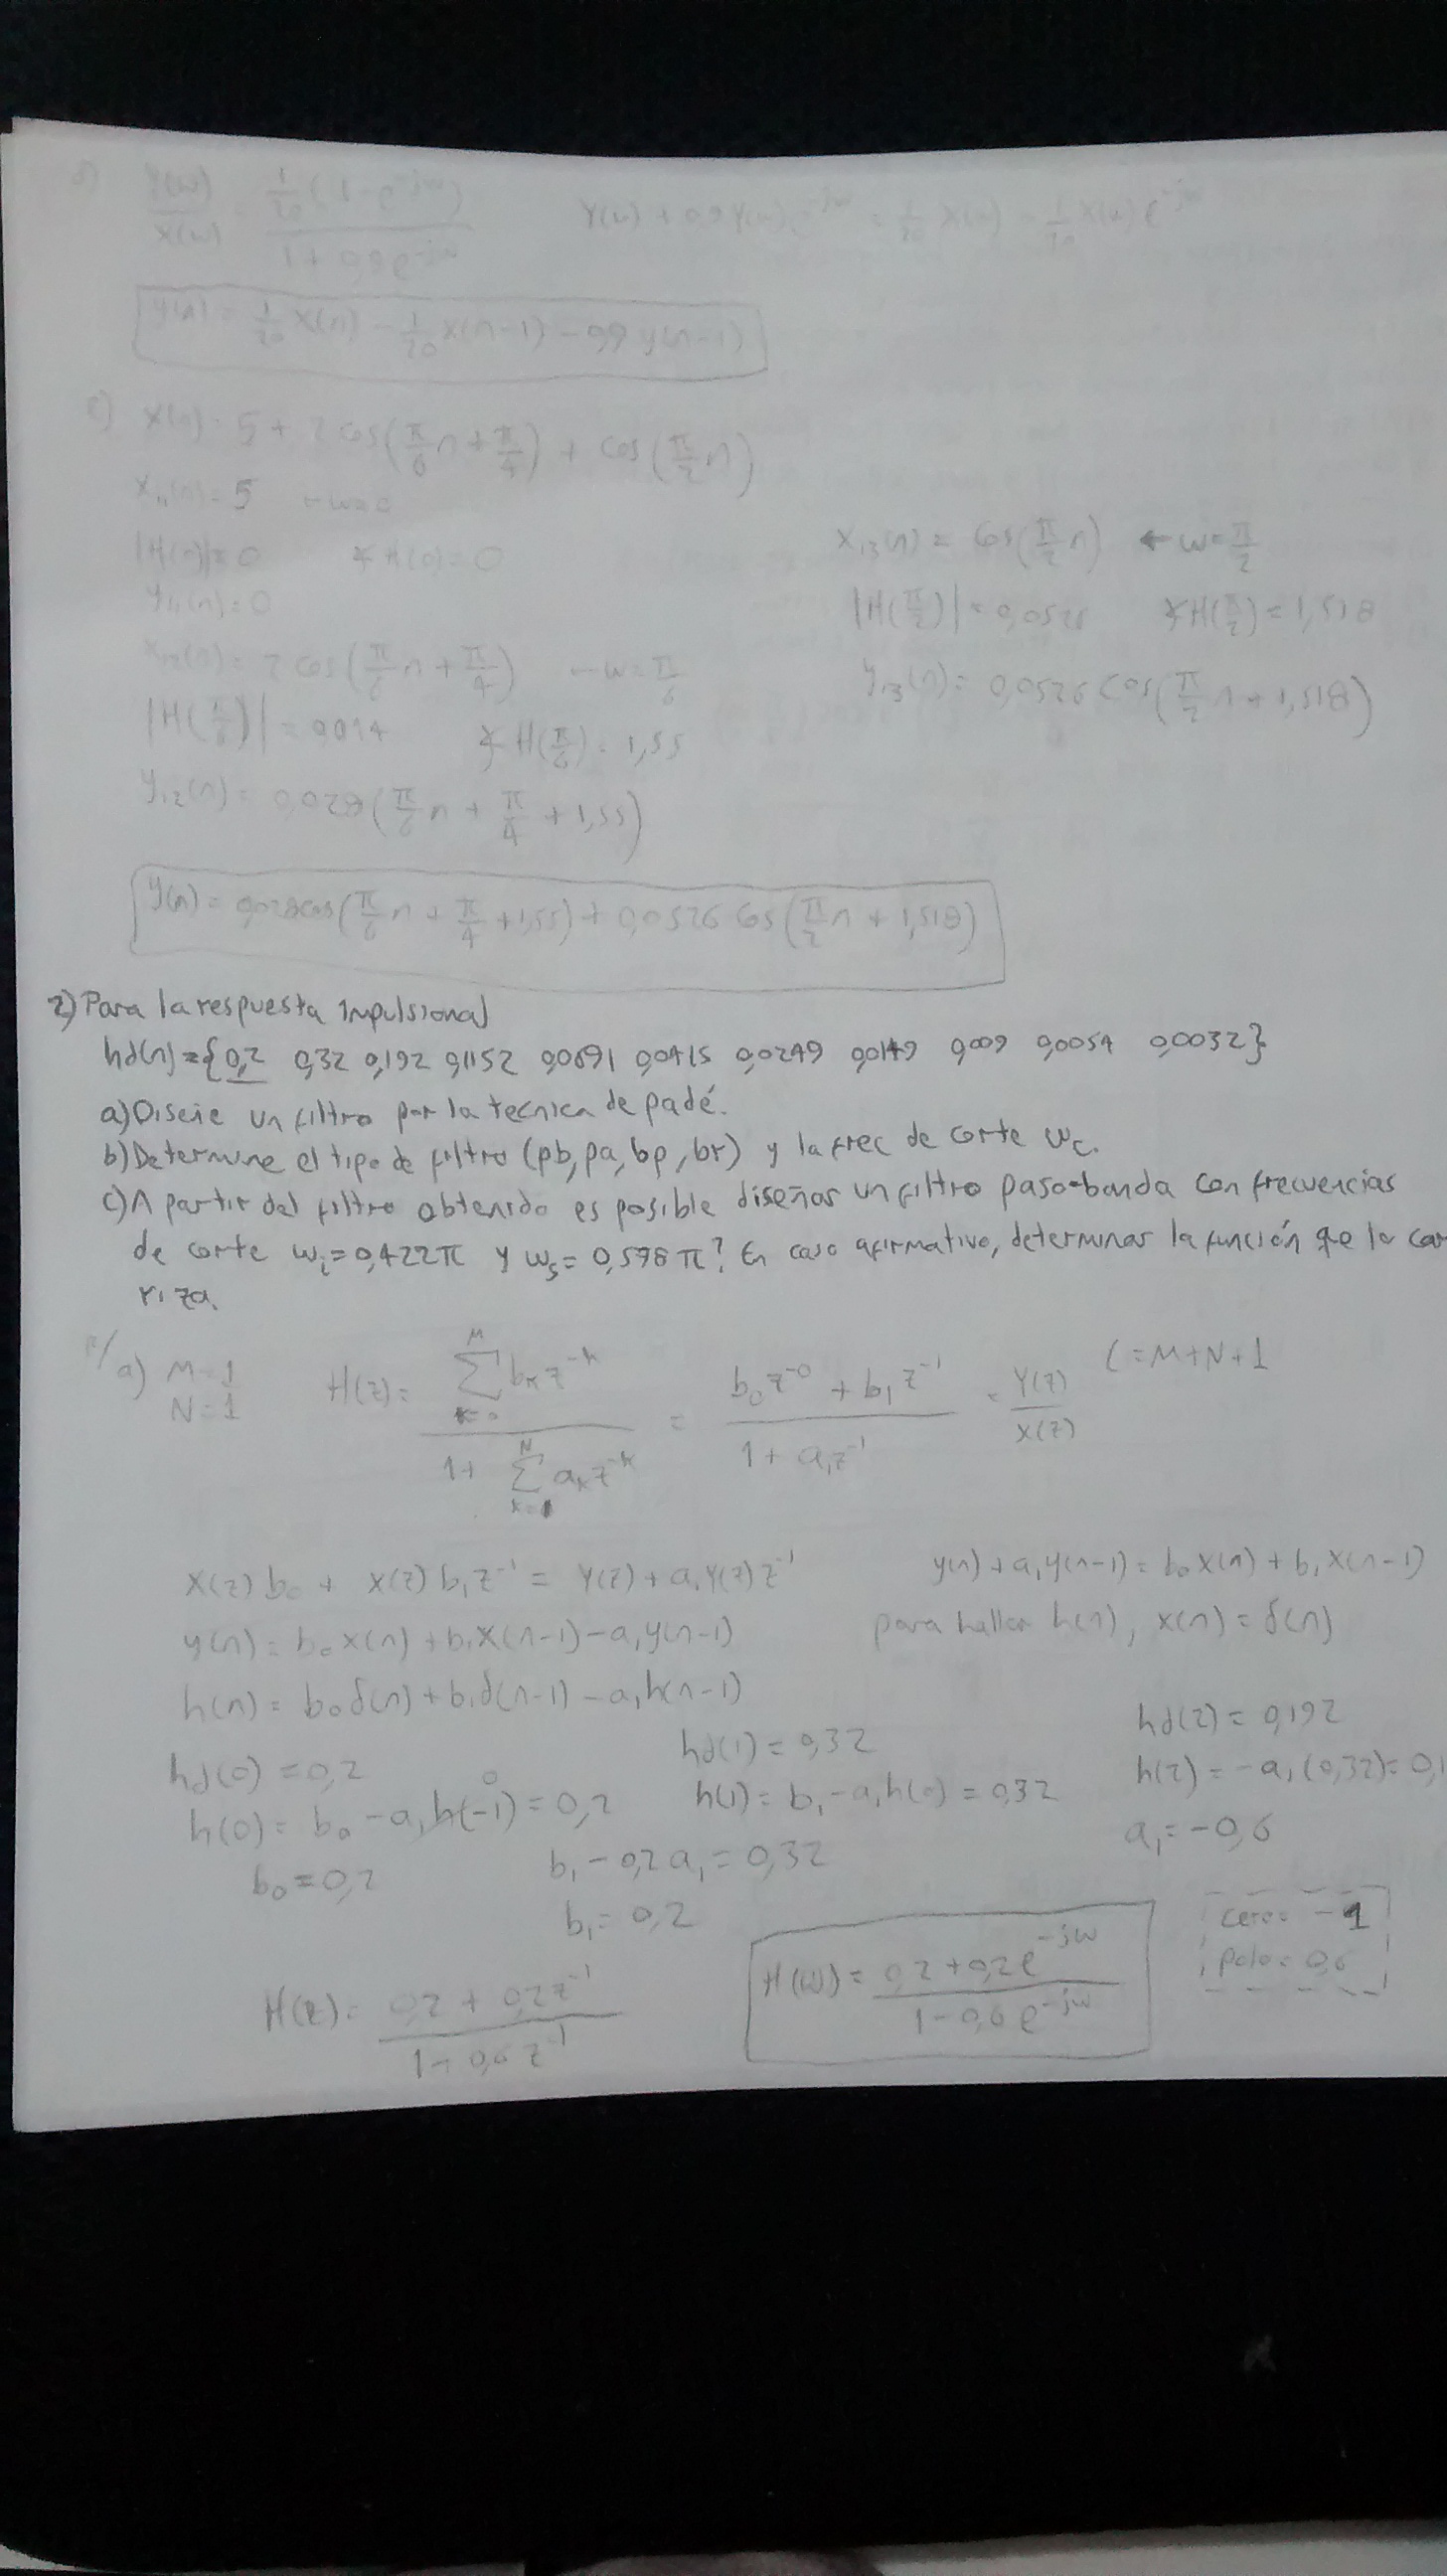 b) Y(w)/X(w) = 1/20 (1-e^-jw) / 1+0,9e^-jw    Y(w) + 0,9Y(w)e^-jw = 1/20 X(w) - 1/20 X(w) e^-jw
y(n) = 1/20 x(n) - 1/20 x(n-1) - 0,9 y(n-1)
c) x(n) = 5 + 2 cos(π/6 n + π/4) + cos(π/2 n)
x11(n) = 5 ← w=0
|H(0)|=0    ∡H(0)=0
y11(n)=0
x12(n) = 2 cos(π/6 n + π/4) ← w=π/6
|H(π/6)| = 0,014    ∡H(π/6) = 1,55
y12(n) = 0,028(π/6 n + π/4 + 1,55)
x13(n) = Cos(π/2 n) ← w=π/2
|H(π/2)| = 0,0526    ∡H(π/2) = 1,518
y13(n) = 0,0526 cos(π/2 n + 1,518)
y(n) = 0,028cos(π/6 n + π/4 + 1,55) + 0,0526 Cos(π/2 n + 1,518)
2) Para la respuesta Impulsional
hd(n) = {0,2 0,32 0,192 0,1152 0,0691 0,0415 0,0249 0,0149 0,009 0,0054 0,0032}
a) Diseñe un filtro por la tecnica de padé.
b) Determine el tipo de filtro (pb, pa, bp, br) y la frec de corte wc.
c) A partir del filtro obtenido es posible diseñar un filtro paso-banda con frecuencias
de corte wi = 0,422π y ws = 0,578π? En caso afirmativo, determinar la función qe lo car
riza.
R/
a) M=1
N=1
H(z) = Σ(k=0..M) bk z^-k / 1+ Σ(k=1..N) ak z^-k = b0 z^-0 + b1 z^-1 / 1 + a1 z^-1 = Y(z)/X(z)    L=M+N+1
X(z) b0 + X(z) b1 z^-1 = Y(z) + a1 Y(z) z^-1    y(n) + a1 y(n-1) = b0 x(n) + b1 x(n-1)
y(n) = b0 x(n) + b1 x(n-1) - a1 y(n-1)    para hallar h(n), x(n) = δ(n)
h(n) = b0 δ(n) + b1 δ(n-1) - a1 h(n-1)
hd(0) = 0,2
h(0) = b0 - a1 h(-1)^0 = 0,2
b0 = 0,2
hd(1) = 0,32
h(1) = b1 - a1 h(0) = 0,32
b1 - 0,2 a1 = 0,32
b1 = 0,2
hd(2) = 0,192
h(2) = -a1 (0,32) = 0,1
a1 = -0,6
H(z) = 0,2 + 0,2z^-1 / 1 - 0,6 z^-1
H(w) = 0,2 + 0,2e^-jw / 1 - 0,6 e^-jw
cero = -1
polo = 0,6